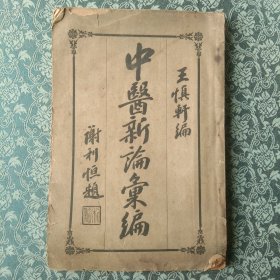 王慎軒編
中醫新論彙編
謝利恒題